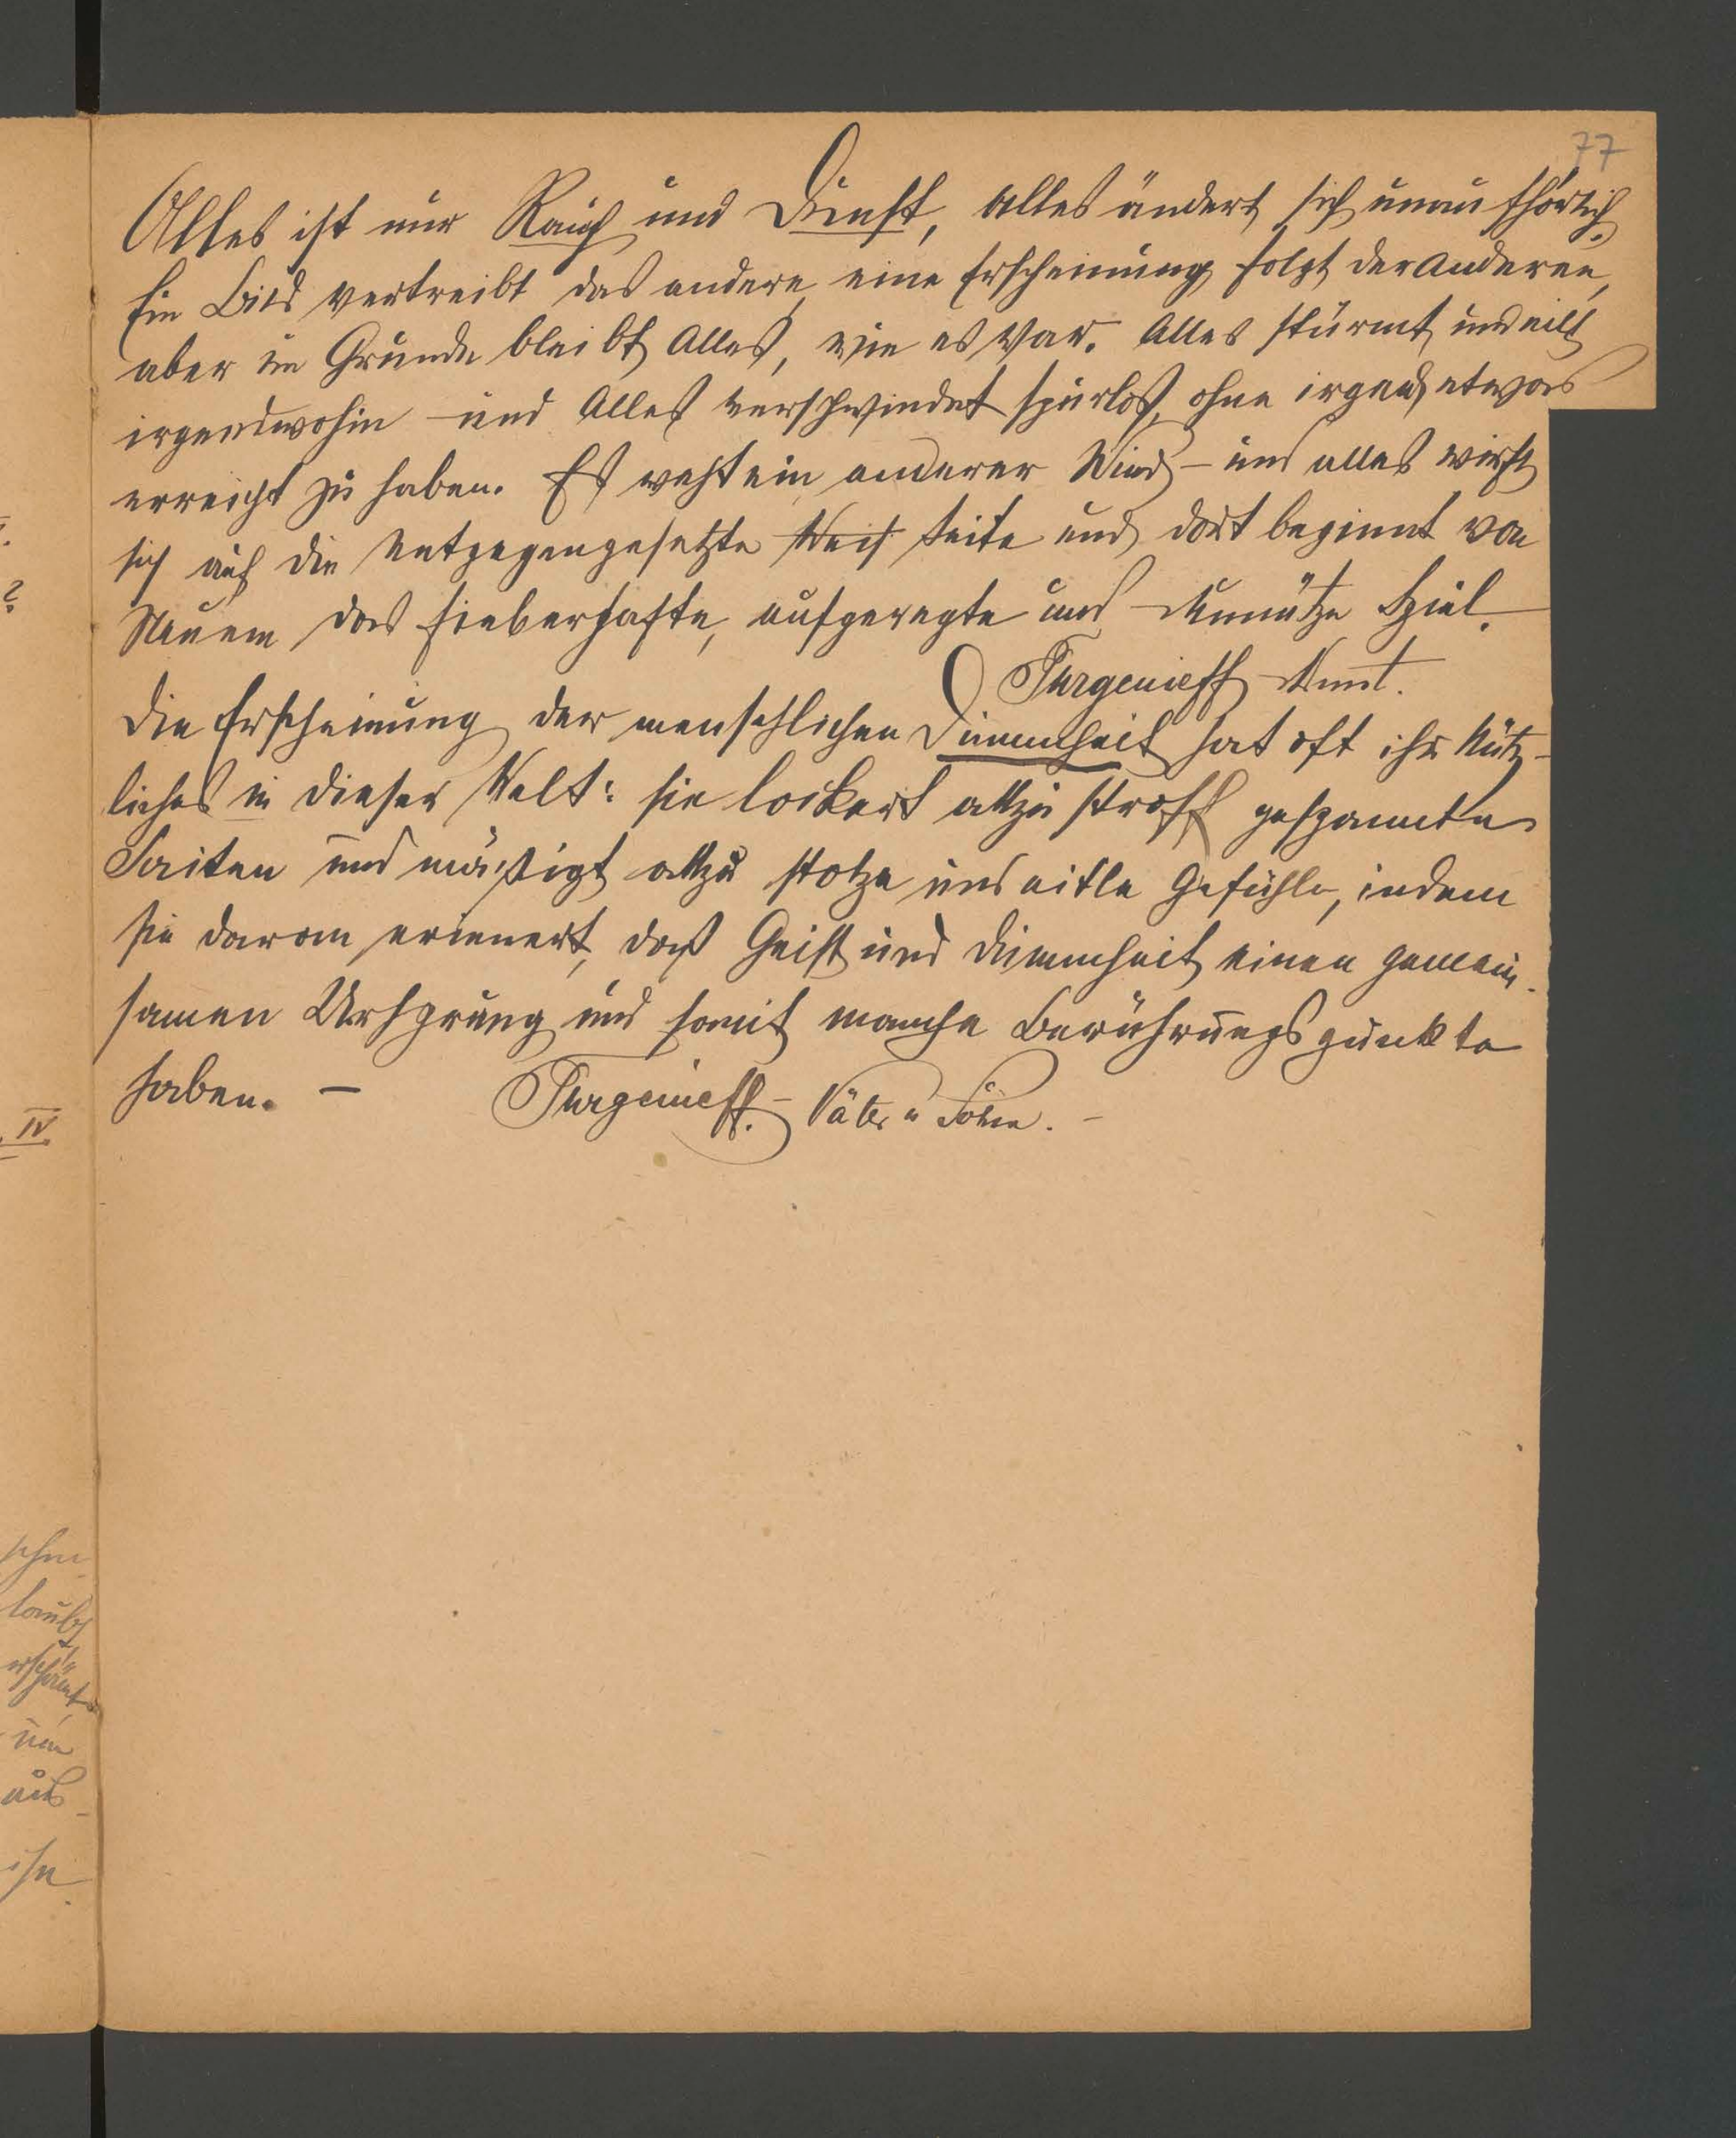 77
Alles ist nur Rauch und Dunst, alles ändert sich unaufhörlich.
Ein Bild vertreibt das andere, eine Erscheinung folgt der anderen,
aber im Grunde bleibt Alles, wie es war. Alles stürmt und eilt
irgendwohin – und Alles verschwindet spurlos, ohne irgend etwas
erreicht zu haben. Es weht ein anderer Wind – und alles wirft
sich auf die entgegengesetzte Seite und dort beginnt von
Neuem das fieberhafte, aufgeregte und unnütze Spiel.
Turgenieff Dunst.
Die Erscheinung der menschlichen Dummheit hat oft ihr Nütz-
liches in dieser Welt: sie lockert allzu straff gespannte
Saiten und mäßigt allzu stolze und eitle Gefühle, indem
sie daran erinnert, daß Geist und Dummheit einen gemein-
samen Ursprung und somit manche Berührungspunkte
haben. – Turgenieff. – Väter u Söhne. –
?
IV.